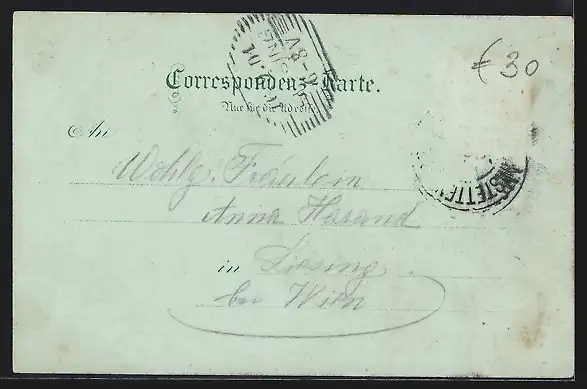 €30
Correspondenz-Karte.
Nur für die Adresse
An
Wohlg. Fräulein
Anna Hasand
in Liesing
bei Wien
AMSTETTE